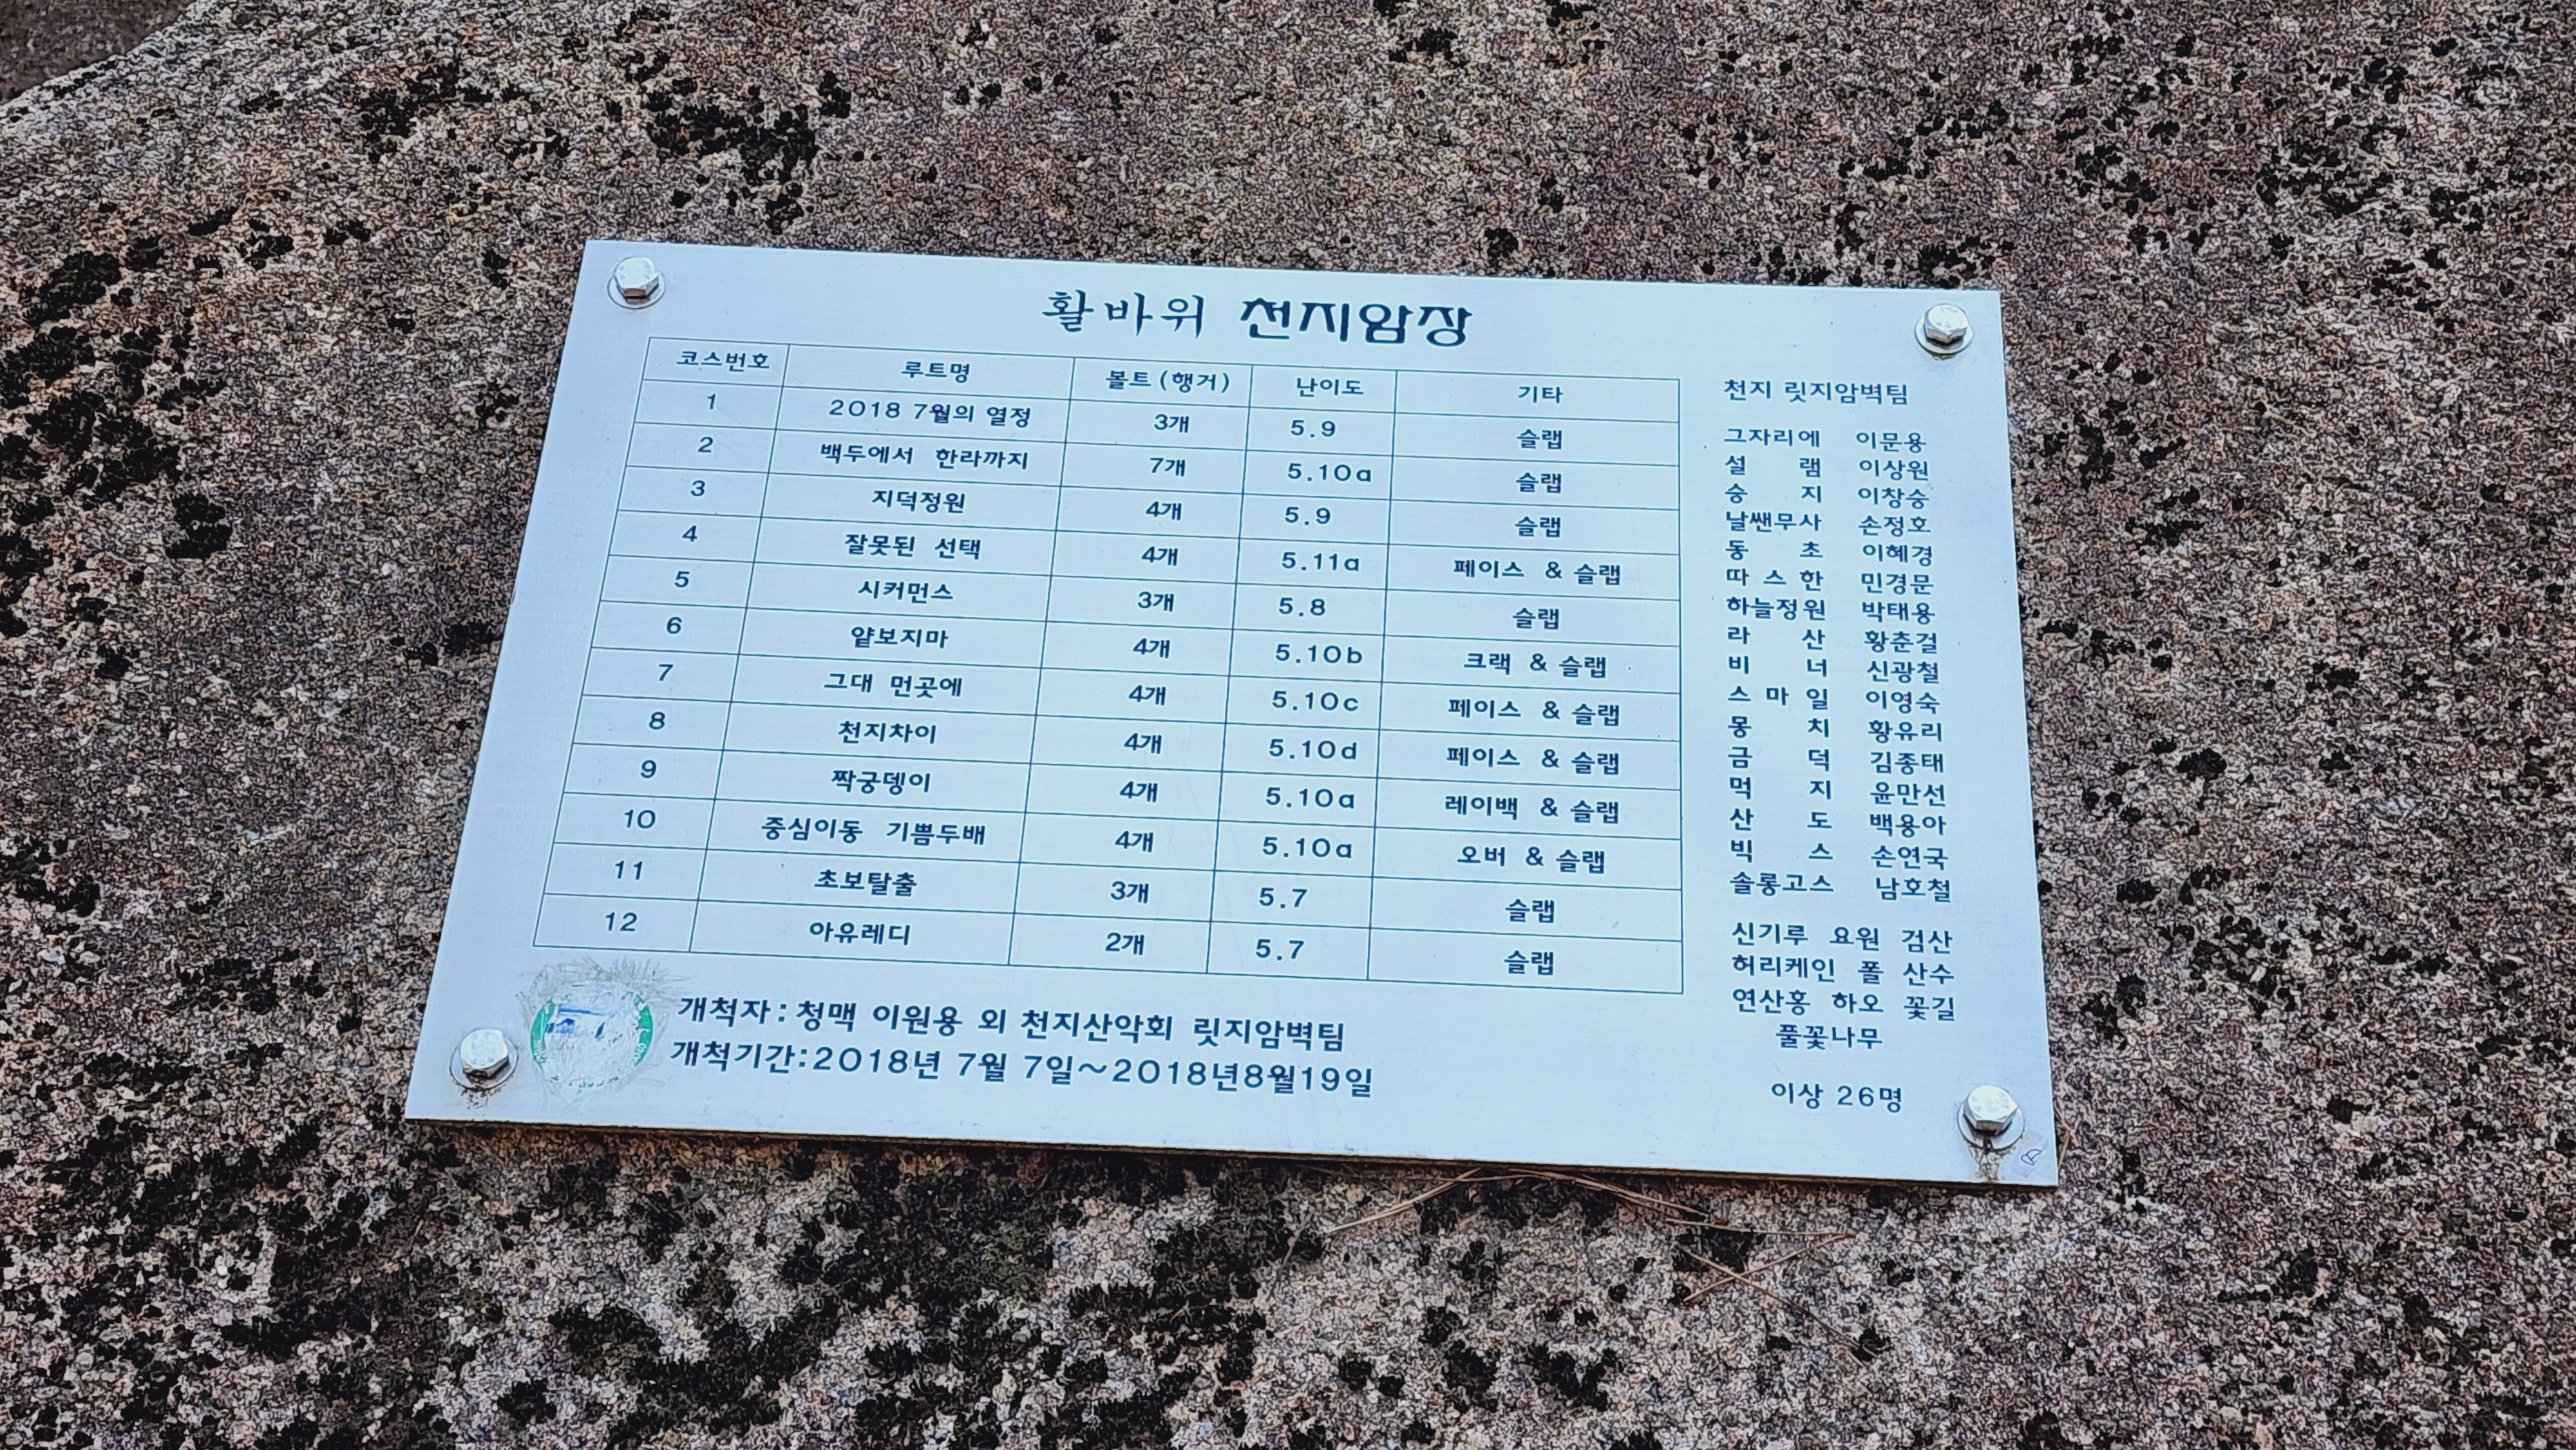 활바위 천지암장
코스번호 루트명 볼트(행거) 난이도 기타
1 2018 7월의 열정 3개 5.9 슬랩
2 백두에서 한라까지 7개 5.10a 슬랩
3 지덕정원 4개 5.9 슬랩
4 잘못된 선택 4개 5.11a 페이스 & 슬랩
5 시커먼스 3개 5.8 슬랩
6 얕보지마 4개 5.10b 크랙 & 슬랩
7 그대 먼곳에 4개 5.10c 페이스 & 슬랩
8 천지차이 4개 5.10d 페이스 & 슬랩
9 짝궁뎅이 4개 5.10a 레이백 & 슬랩
10 중심이동 기쁨두배 4개 5.10a 오버 & 슬랩
11 초보탈출 3개 5.7 슬랩
12 아유레디 2개 5.7 슬랩
개척자 : 청맥 이원용 외 천지산악회 릿지암벽팀
개척기간:2018년 7월 7일~2018년8월19일
천지 릿지암벽팀
그자리에 이문용
설 램 이상원
승 지 이창승
날쌘무사 손정호
동 초 이혜경
따 스 한 민경문
하늘정원 박태용
라 산 황춘걸
비 너 신광철
스 마 일 이영숙
몽 치 황유리
금 덕 김종태
먹 지 윤만선
산 도 백용아
빅 스 손연국
솔롱고스 남호철
신기루 요원 검산
허리케인 폴 산수
연산홍 하오 꽃길
풀꽃나무
이상 26명